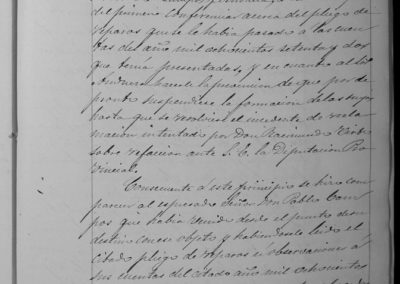 del primero conferenciar acerca del pliego de
reparos que se le había pasado a las cuen
tas del año mil ochocientos setenta y dos
que tenía presentadas, y en cuanto al
hacerle la prevención de que por de
pronto suspendiese la formación de las suyas
hasta que se resolviese el incidente de recla
mación intentado por Don Raimundo
sobre refacción ante S. E. la Diputación Pro
vincial.
Consecuente á este principio se hizo com
parecer al espresado Señor Don Pablo Cam
pos que había venido desde el punto de su
destino con ese objeto y habiéndosele leido el
citado pliego de reparos ú observaciones á
sus cuentas del citado año mil ochocientos